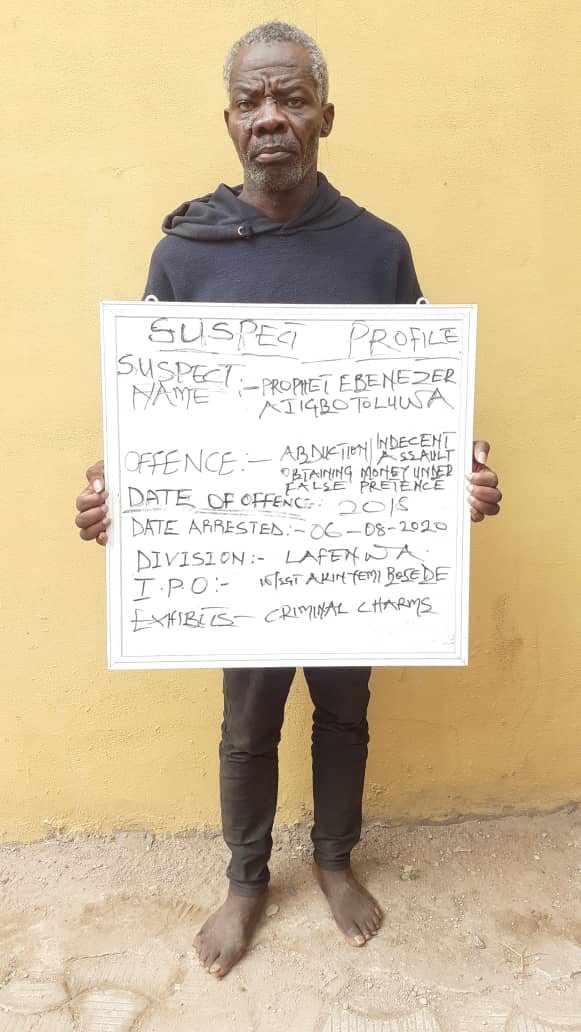 SUSPECT PROFILE
SUSPECT NAME :- PROPHET EBENEZER
AJIGBOTOLUWA
OFFENCE:- ABDUCTION/INDECENT
ASSAULT
OBTAINING MONEY UNDER
FALSE PRETENCE
DATE OF OFFENCE: 2015
DATE ARRESTED:- 06-08-2020
DIVISION:- LAFENWA.
I.P.O:- W/SGT AKINYEMI BOSEDE
EXHIBITS- CRIMINAL CHARMS